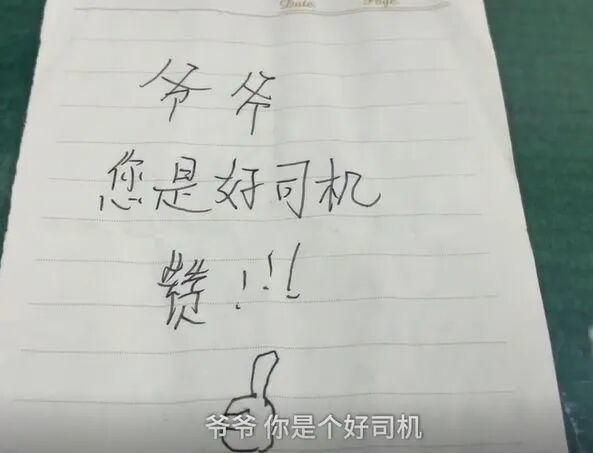 Date. Page.
爷爷
您是好司机
赞!!!
爷爷 你是个好司机